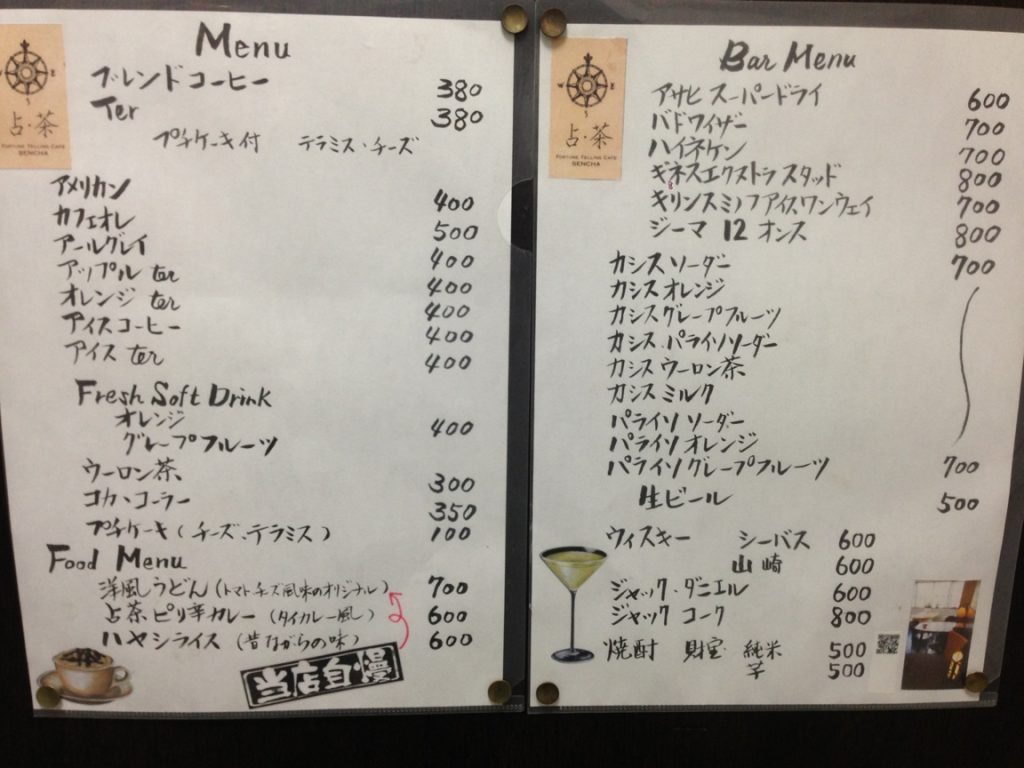 占・茶
FORTUNE TELLING CAFE
SENCHA
Menu
ブレンドコーヒー 380
Ter 380
プチケーキ付 テラミス・チーズ
アメリカン 400
カフェオレ 500
アールグレイ 400
アップル ter 400
オレンジ ter 400
アイスコーヒー 400
アイス ter 400
Fresh Soft Drink
オレンジ
グレープフルーツ 400
ウーロン茶 300
コカ・コーラー 350
プチケーキ(チーズ、テラミス) 100
Food Menu
洋風うどん(トマトチーズ風味のオリジナル) 700
占茶ピリ辛カレー(タイカレー風) 600
ハヤシライス(昔ながらの味) 600
当店自慢
占・茶
FORTUNE TELLING CAFE
SENCHA
Bar Menu
アサヒ スーパードライ 600
バドワイザー 700
ハイネケン 700
ギネスエクストラ スタッド 800
キリンスミノフアイスワンウェイ 700
ジーマ 12 オンス 800
カシス ソーダー 700
カシス オレンジ
カシスグレープフルーツ
カシス パライソソーダー
カシス ウーロン茶
カシス ミルク
パライソ ソーダー
パライソ オレンジ
パライソ グレープフルーツ 700
生ビール 500
ウィスキー シーバス 600
山崎 600
ジャック・ダニエル 600
ジャック コーク 800
焼酎 財宝 純米 500
芋 500